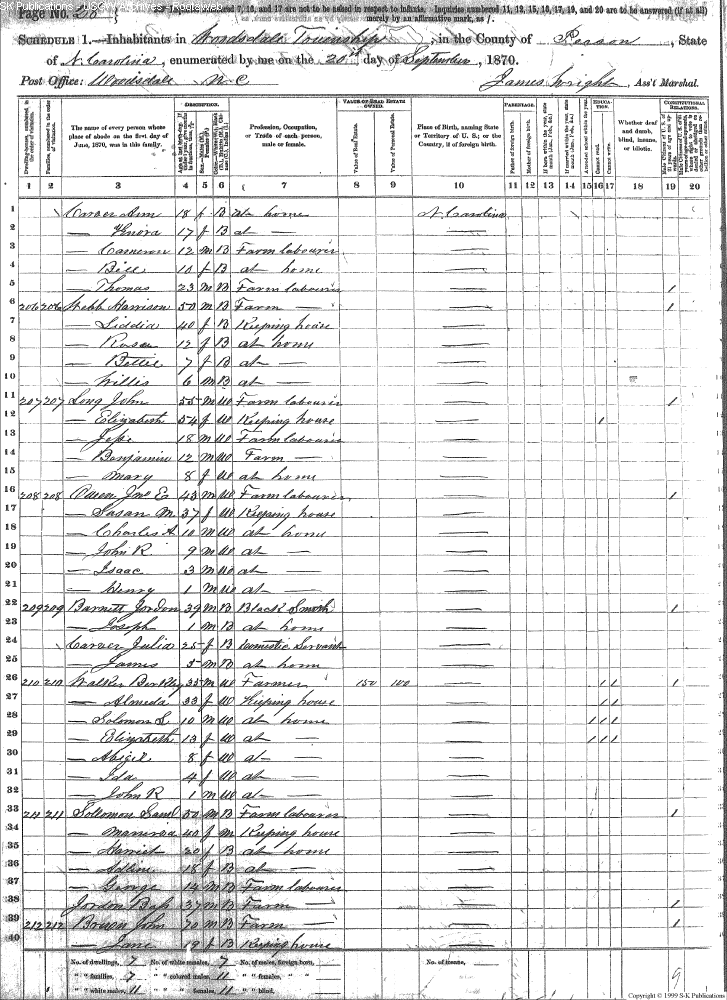 SK Publications - USGenWeb Archives - Rootsweb
Page No. 26
Inquiries numbered 7, 16, and 17 are not to be asked in respect to infants. Inquiries numbered 11, 12, 15, 16, 17, 19, and 20 are to be answered (if at all) merely by an affirmative mark, as /.
SCHEDULE 1.—Inhabitants in Woodsdale Township, in the County of Person, State
of N. Carolina, enumerated by me on the 20th day of September, 1870.
Post Office: Woodsdale N C James Wright, Ass't Marshal.
DESCRIPTION. VALUE OF REAL ESTATE OWNED. PARENTAGE. EDUCATION. CONSTITUTIONAL RELATIONS.
The name of every person whose place of abode on the first day of June, 1870, was in this family.
Profession, Occupation, or Trade of each person, male or female.
Value of Real Estate.
Value of Personal Estate.
Place of Birth, naming State or Territory of U. S.; or the Country, if of foreign birth.
Father of foreign birth.
Mother of foreign birth.
Attended school within the year.
Cannot read.
Cannot write.
Whether deaf and dumb, blind, insane, or idiotic.
1 2 3 4 5 6 7 8 9 10 11 12 13 14 15 16 17 18 19 20
1 Carver Ann 18 f B at home N. Carolina
2 — 17 f B at —
3 — Cameron 12 m B Farm labourer —
4 — 10 f B at home —
5 — Thomas 23 m B Farm labourer — 1
6 206 206 Webb Harrison 50 m B Farm — — 1
7 — Liddia 40 f B Keeping house —
8 — Rosa 12 f B at home —
9 — Bettie 7 f B at — —
10 — Willis 6 m B at — —
11 207 207 Long John 55 m W Farm labourer — 1
12 — Elizabeth 54 f W Keeping house — 1
13 — Jesse 18 m W Farm labourer —
14 — Benjamin 12 m W Farm — —
15 — Mary 8 f W at home —
16 208 208 Owen Jno E 43 m W Farm labourer — 1
17 — Susan M 37 f W Keeping house —
18 — Charlie A 10 m W at home —
19 — John R 9 m W at — —
20 — Isaac 3 m W at — —
21 — Henry 1 m W at — —
22 209 209 Barnett Jordon 39 m B Black Smith — 1
23 — Joseph 1 m B at home —
24 Carver Julia 25 f B Domestic Servant —
25 — James 5 m B at home —
26 210 210 Walker 35 m W Farmer 150 100 — 1 1 1
27 — Almeda 33 f W Keeping house — 1 1
28 — Solomon L 10 m W at home — 1 1 1
29 — Elizabeth 13 f W at — — 1 1 1
30 — 8 f W at — —
31 — Ida 4 f W at — —
32 — John R 1 m W at — —
33 211 211 Sollomon Saml 50 m B Farm labourer — 1
34 — 40 f m Keeping house —
35 — Harriet 20 f B at home —
36 — Adline 18 f B at — —
37 — George 14 m B Farm labourer —
38 Jordon 37 m B Farm — — 1
39 212 212 Brown John 70 m B Farm — — 1
40 — Jane 19 f B Keeping house —
No. of dwellings, 7 No. of white males, 7 No. of males, foreign born, — No. of insane, —
" " families, 7 " " colored males, 11 " " females, " —
" " white males, 11 " " females, 11 " " blind, — 9
Copyright © 1999 S-K Publications